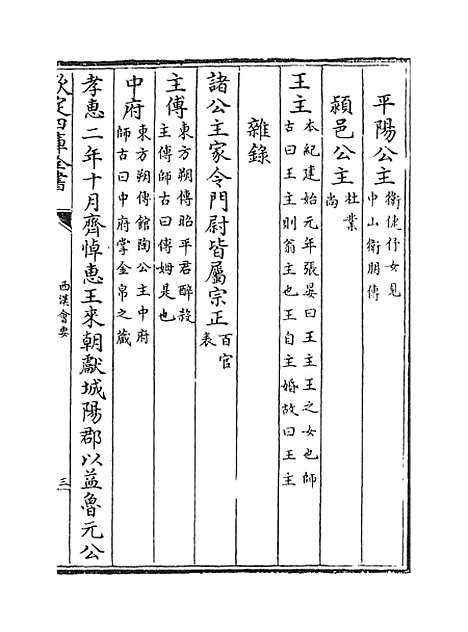 平陽公主 衛倢伃女見
中山衛朋傳
潁邑公主 杜業
尚
王主 本紀建始元年張晏曰王主王之女也師
古曰王主則翁主也王自主婚故曰王主
雜錄
諸公主家令門尉皆屬宗正 百官
表
主傅 東方朔傳昭平君醉殺
主傅師古曰傅姆是也
中府 東方朔傳館陶公主中府
師古曰中府掌金帛之藏
孝惠二年十月齊悼惠王來朝獻城陽郡以益魯元公
欽定四庫全書
西漢會要
三